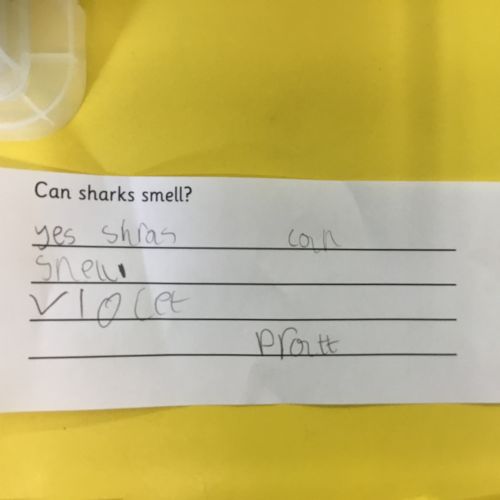 Can sharks smell?
yes shras can
snell
VIOLet
Pratt